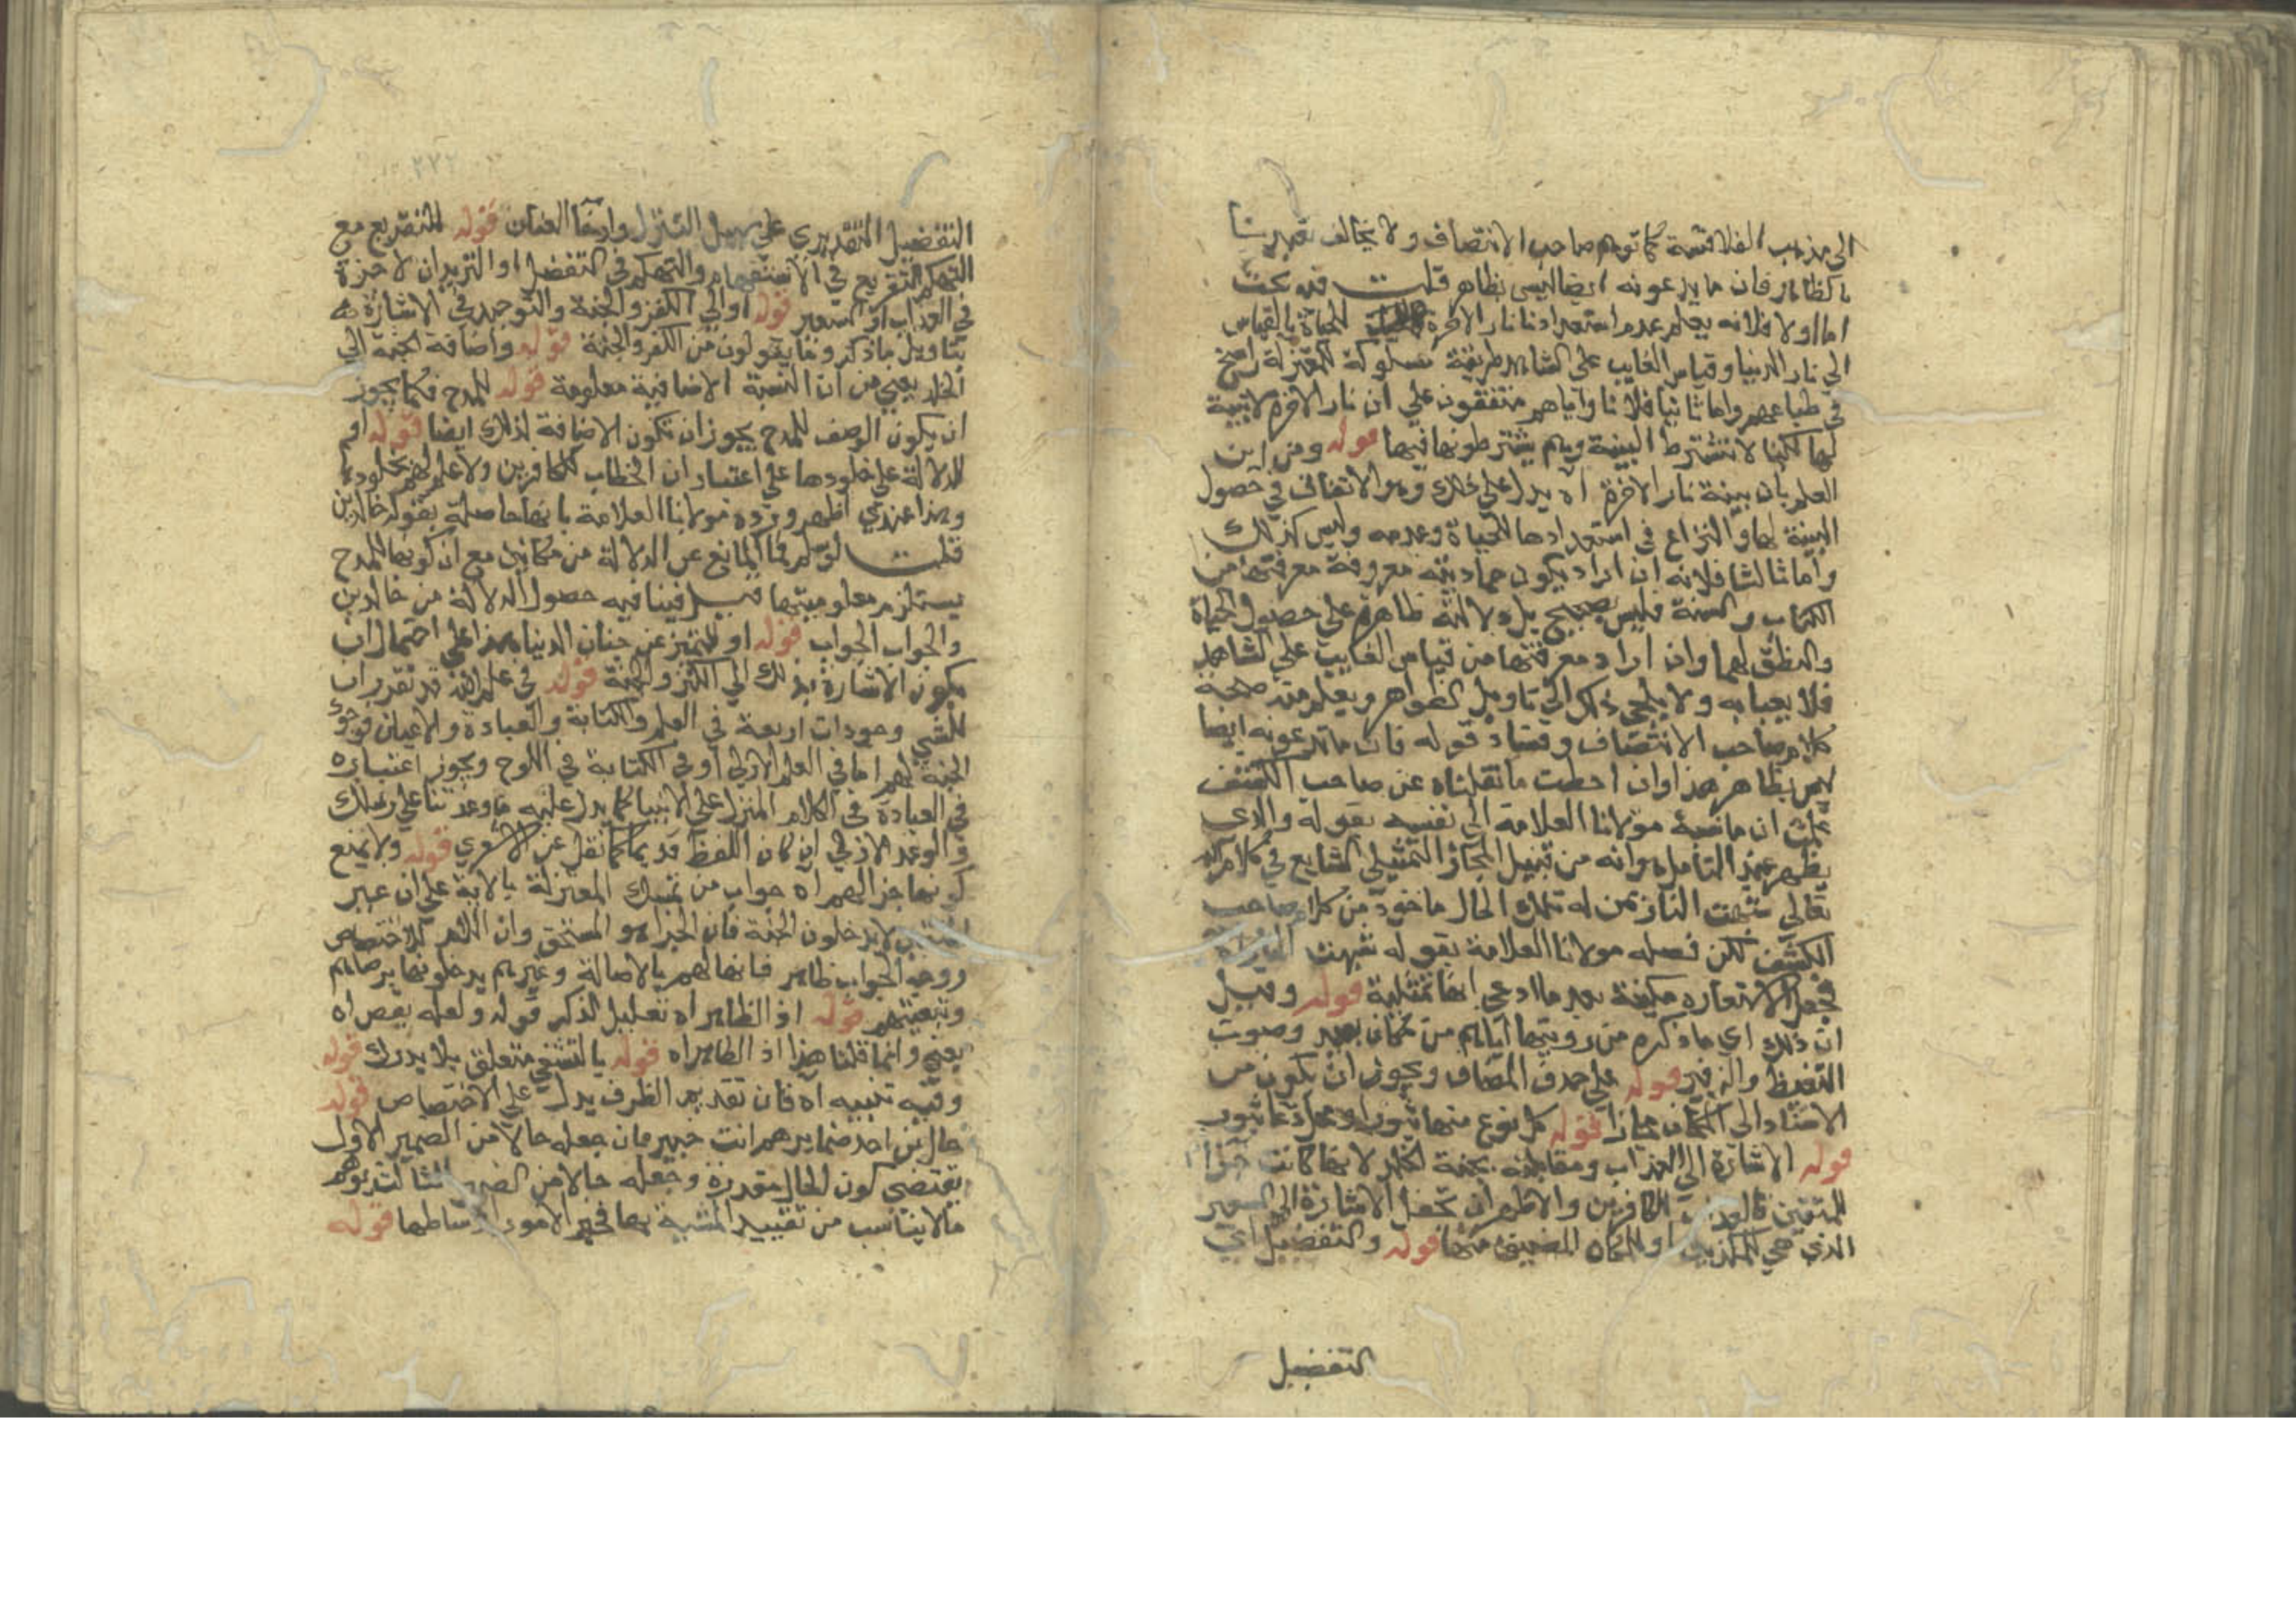 الى مذهب الفلاسفة كما توهم صاحب الانتصاف ولا يخالف تقريرنا
بالظاهر فان ما يدعونه ايضا ليس بظاهر قلت فيه بحث
اما اولا فلانه يعلم عدم استعداد نار الاخرة للحياة بالقياس
الى نار الدنيا وقياس الغايب على الشاهد طريقة مسلوكة للمعتزلة راسخ
في طباعهم واما ثانيا فلانا واياهم متفقون على ان نار الاخرة لا بنية
لها لكنا لا نشترط البنية وهم يشترطونها فيها قوله ومن اين
العلم بان بنية نار الاخرة اه يدل على ذلك وهو الاتفاق في حصول
البنية لها والنزاع في استعدادها للحياة وعدمه وليس كذلك
واما ثالثا فلانه ان اراد بكون جماديته معروفة معرفتها من
الكتاب والسنة فليس بصحيح بل دلالته ظاهرة على حصول الحياة
والنطق لها وان اراد معرفتها من قياس الغايب على الشاهد
فلا يعبا به ولا يلجئ ذلك الى تاويل الظواهر ويعلم منه صحة
كلام صاحب الانتصاف وفساد قوله فان ما تدعونه ايضا
ليس بظاهر هذا وان احطت ما نقلناه عن صاحب الكشف
علمت ان ما نسبه مولانا العلامة الى نفسه بقوله والذي
يظهر عند التامل اه وانه من قبيل المجاز التمثيلي الشايع في كلام الله
تعالى شبهت النار بمن له تلك الحال ماخوذ من كلام صاحب
الكشف لكن فصله مولانا العلامة بقوله شبهت النار اه
فجعل الاستعاره مكنية بعد ما ادعى انها تمثيلية قوله وقيل
ان ذلك اي ما ذكره من رويتها اياهم من مكان بعيد وصوت
التغيظ والزفير قوله على حذف المضاف ويجوز ان يكون من
الاسناد الى المكان مجازا قوله كل نوع منها ثبورا
قوله الاشارة الى العذاب ومقابلته بجنة الخلد لانها كانت جزاا
للمتقين كالعذاب للكافرين والاظهر ان تجعل الاشارة الى السعير
الذي هي للمكذبين او المكان المضيق منها قوله والتفضيل اي
التفضيل
التفضيل التقديري على سبيل التنزل وارخا العنان قوله للتقريع مع
التهكم التقريع في الاستفهام والتهكم في التفضيل او الترديد ان لا خيرة
في العذاب او السعير قوله او الى الكنز والجنة والتوحيد في الاشارة
بتاويل ما ذكر وما يقولون من الكنز والجنة قوله واضافة الجنة الى
الخلد يعني من ان النسبة الاضافية معلومة قوله للمدح فكما يجوز
ان يكون الوصف للمدح يجوز ان تكون الاضافة لذلك ايضا قوله او
للدلالة على خلودها على اعتبار ان الخطاب للكافرين ولا علم لهم بخلودها
وهذا عندي اظهر ورده مولانا العلامة بانها حاصلة بقوله خالدين
قلت لو سلم فما المانع عن الدلالة من مكانين مع ان كونها للمدح
يستلزم معلوميتها قبل فينافيه حصول الدلالة من خالدين
والجواب الجواب قوله او للتميز عن جنان الدنيا هذا على احتمال ان
يكون الاشارة بذلك الى الكنز والجنة قوله في علم الله قد تقرر ان
للشي وجودات اربعة في العلم والكتابة والعبادة والاعيان فوجود
الجنة لهم اما في العلم الازلي او في الكتابة في اللوح ويجوز اعتباره
في العبادة في الكلام المنزل على الانبيا كما يدل عليه ما وعدتنا على رسلك
والوعد الازلي ان كان اللفظ قديما كما نقل عن الاشعري قوله ولا يمنع
كونها جزا لهم اه جواب من تمسك المعتزلة بالاية على ان غير
المتقين لا يدخلون الجنة فان الجزا هو المستحق وان اللام للاختصاص
ووجه الجواب ظاهر فانها لهم بالاصالة وغيرهم يدخلونها برضاهم
وتبعيتهم قوله اذ الظاهر اه تعليل لذكر قوله ولعله بعض اه
يعني وانما قلنا هذا اذ الظاهر اه قوله بالتشهي متعلق بلا يدرك قوله
وفيه تنبيه اه فان تقديم الظرف يدل على الاختصاص قوله
حال من احد ضمايرهم انت خبير بان جعله حالا من الضمير الاول
يقتضي كون الحال مقدرة وجعله حالا من الضمير الثالث يوهم
ما لا يناسب من تقييد المشية بها فخير الامور اوساطها قوله